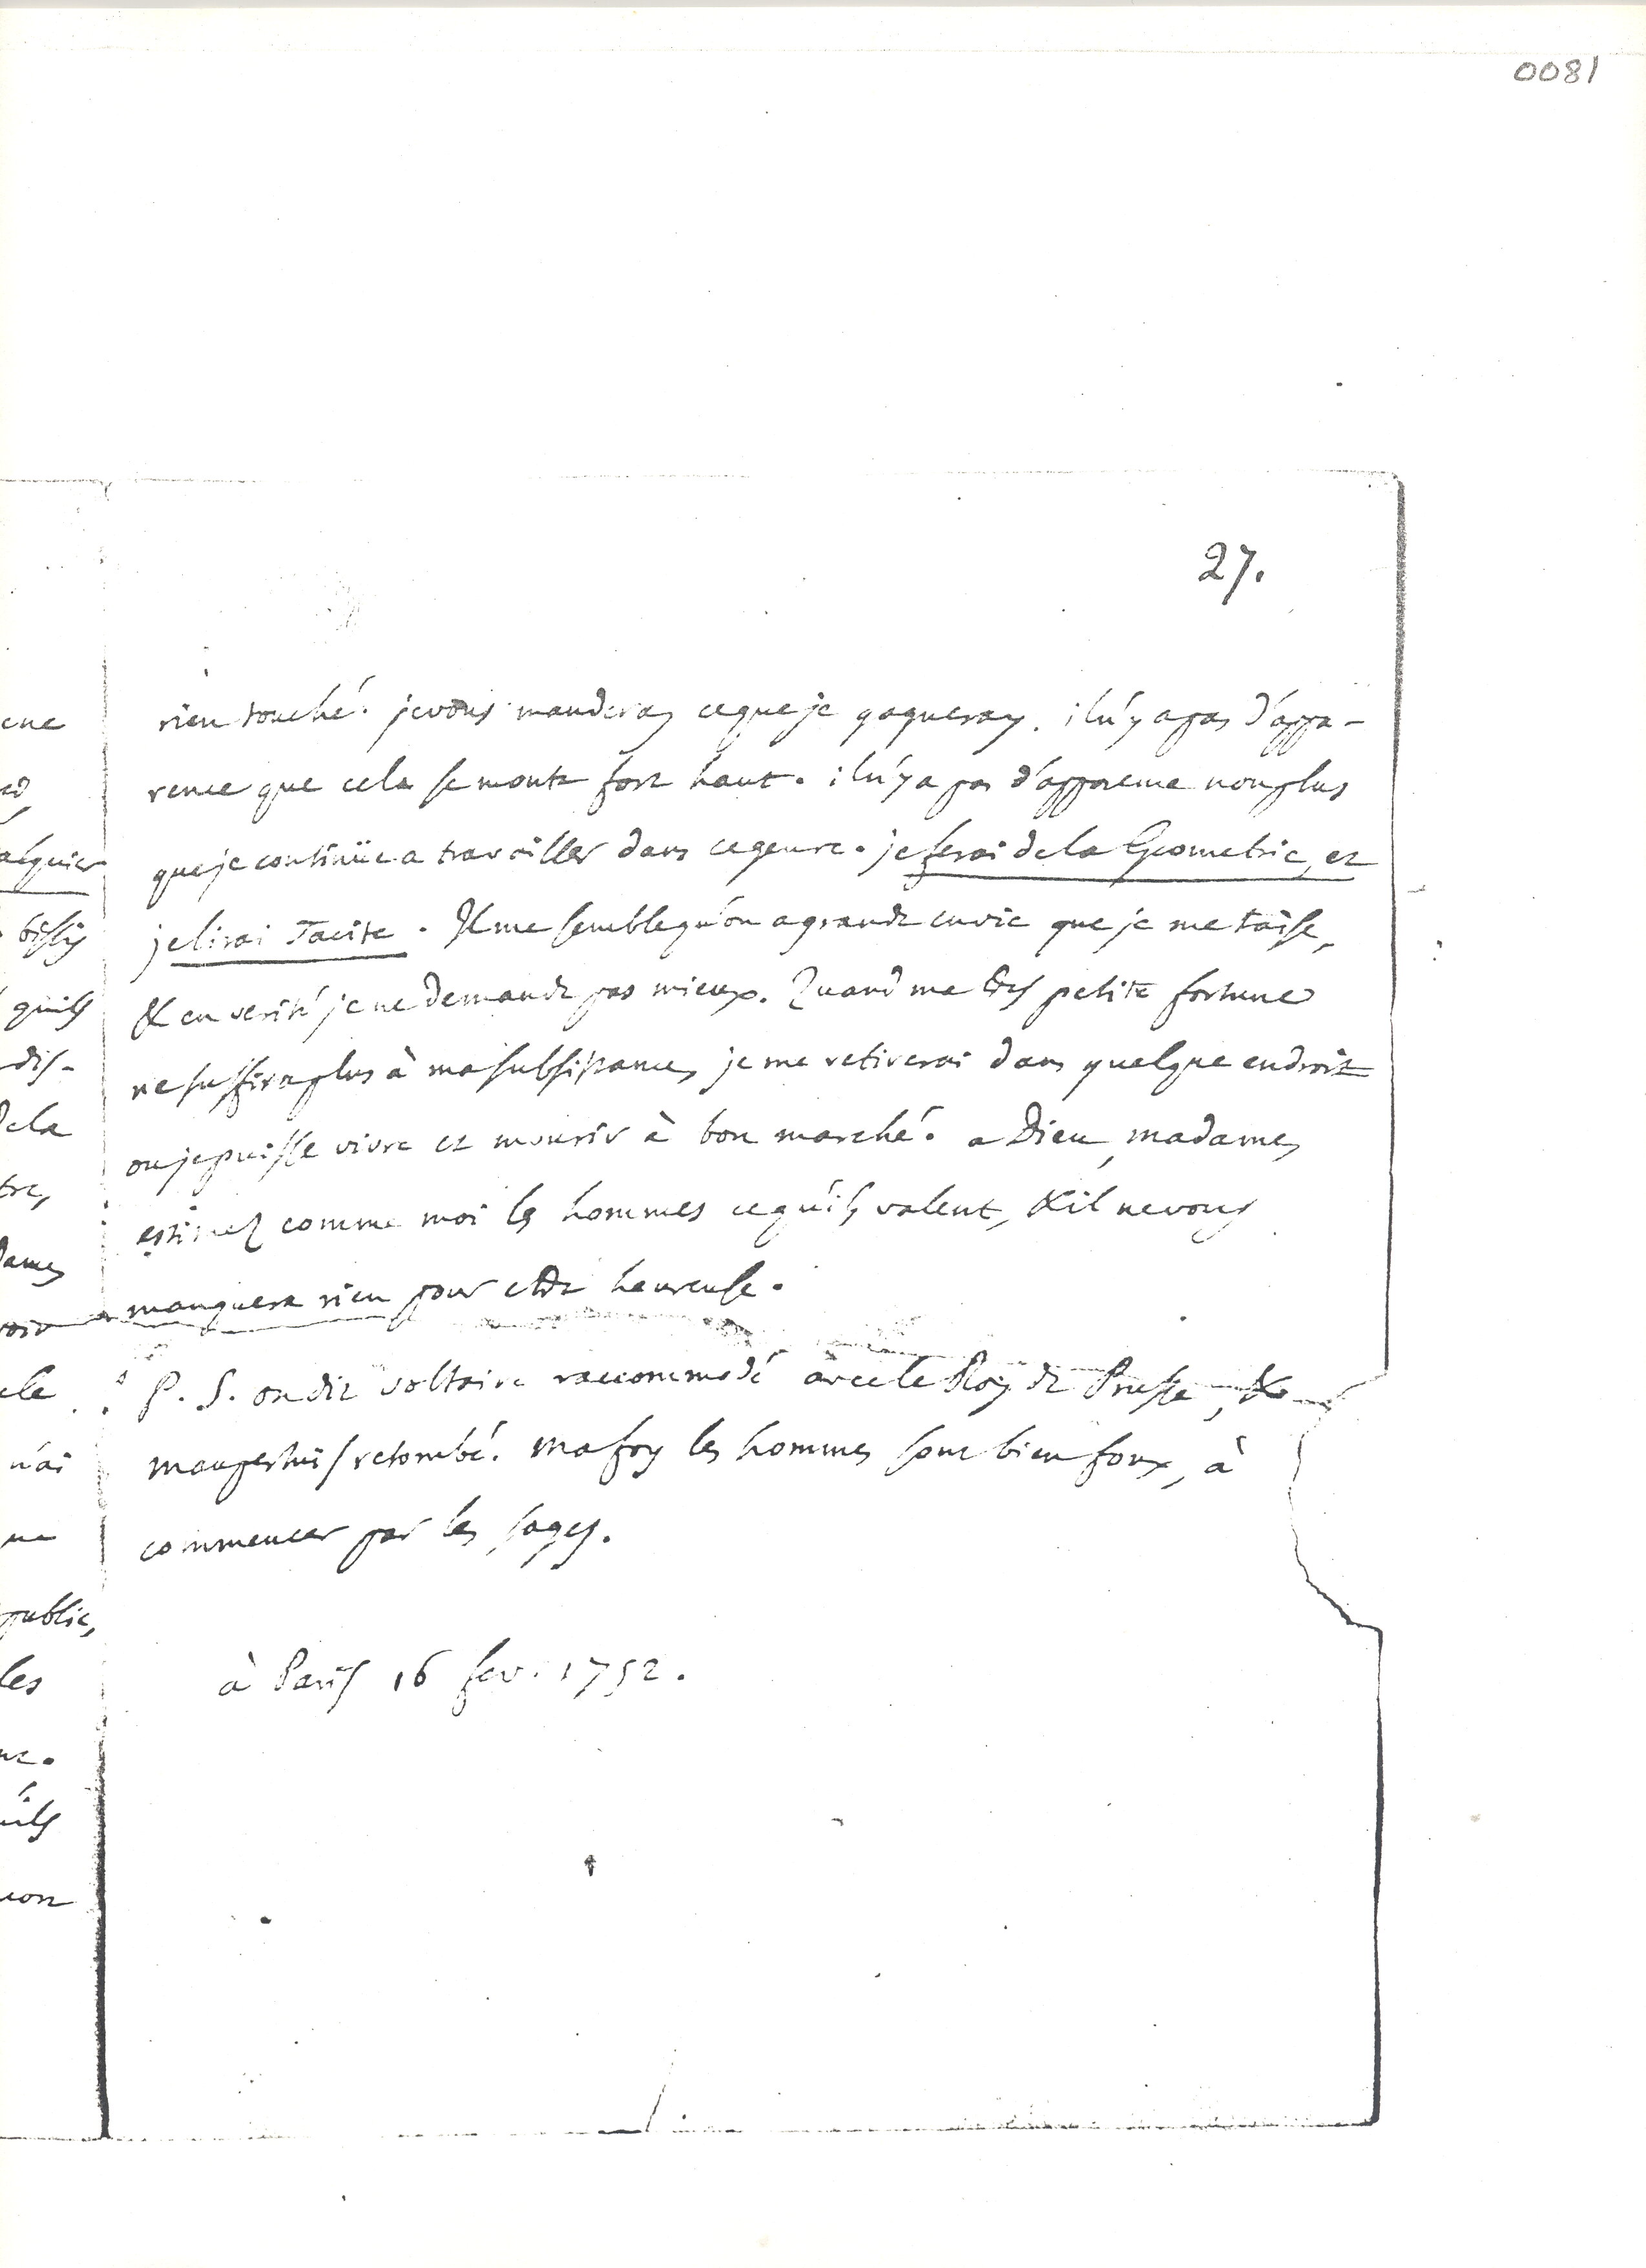 0081
27.
rien touché. je vous manderay ce que je gagneray. il n'y a pas d'appa-
rence que cela se monte fort haut. il n'y a pas d'apparence non plus
que je continüe a travailler dans ce genre. je ferai de la Geometrie, et
je lirai Tacite. Il me semble qu'on a grande envie que je me taise,
& en verité je ne demande pas mieux. Quand ma petite fortune
ne suffira plus à ma subsistance, je me retirerai dans quelque endroit
ou je puisse vivre et mourir à bon marché. a Dieu, madame,
estimez comme moi les hommes ce qu'ils valent, & il ne vous
manquera rien pour etre heureuse.
P. S. on dit Voltaire raccommodé avec le Roy de Prusse, &
maupertuis retombé. ma foy les hommes sont bien foux, à
commencer par les sages.
à Paris 16 fev. 1752.
ene
alguier
bissy
quils
dis-
de la
tre,
dame,
voir
ele
n'ai
public,
les
uils